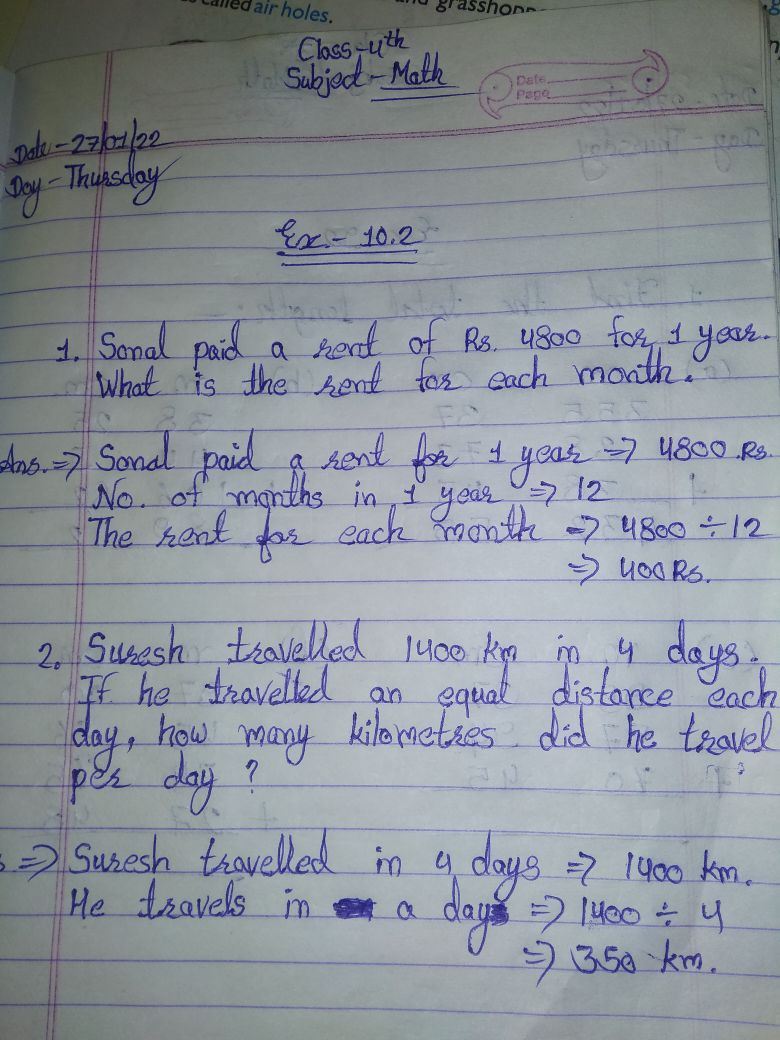 called air holes.
grasshopp
Class-4th
Subject - Math
Date
Page
Date - 27/01/22
Day - Thursday
Ex - 10.2
1. Sonal paid a rent of Rs. 4800 for 1 year.
What is the rent for each month.
Ans. => Sonal paid a rent for 1 year => 4800 Rs.
No. of months in 1 year => 12
The rent for each month => 4800 ÷ 12
=> 400 Rs.
2. Suresh travelled 1400 km in 4 days.
If he travelled an equal distance each
day, how many kilometres did he travel
per day ?
=> Suresh travelled in 4 days => 1400 km.
He travels in a day => 1400 ÷ 4
=> 350 km.